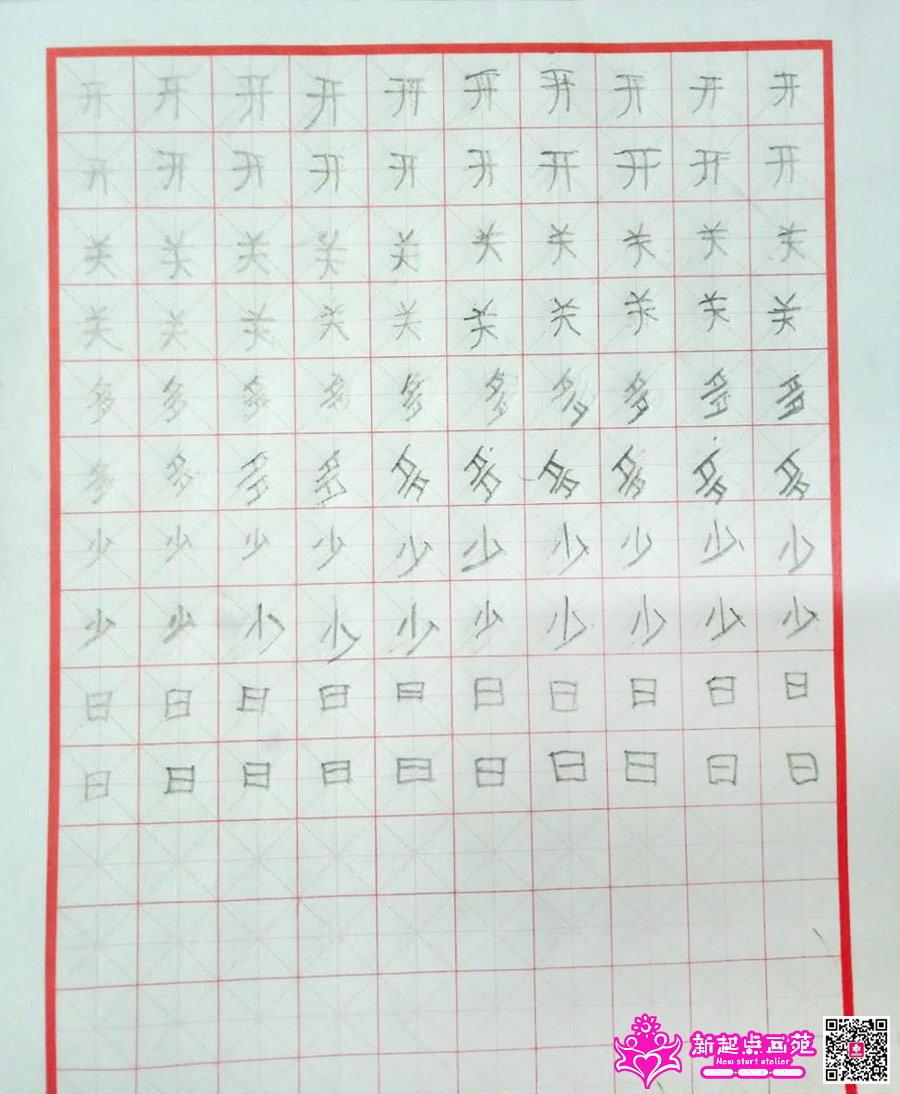 开开开开开开开开开开
开开开开开开开开开开
关关关关关关关关关关
关关关关关关关关关关
多多多多多多多多多多
多多多多多多多多多多
少少少少少少少少少少
少少少少少少少少少少
日日日日日日日日日日
日日日日日日日日日日
新起点画苑
New start atelier